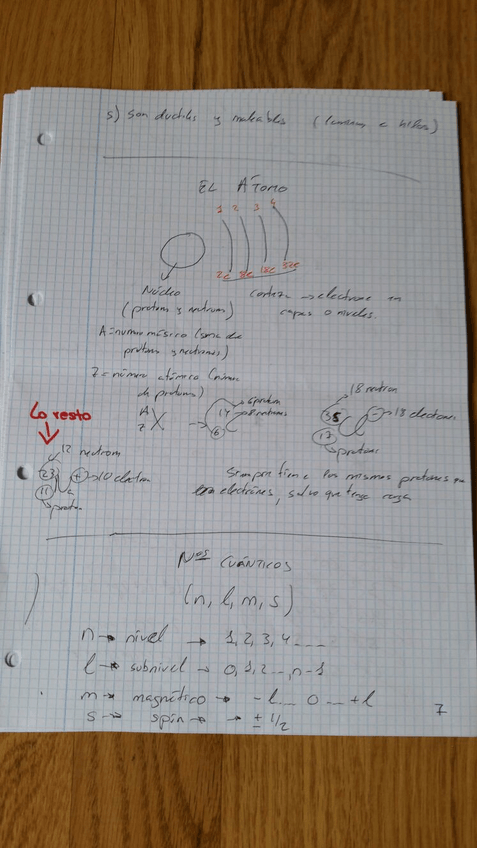 5) Son ductiles y maleables (laminas e hilos)
EL ÁTOMO
1 2 3 4
2e 8e 18e 32e
Núcleo
(protons y neutrons)
Corteza → electrons en
capas o niveles.
A = numero másico (suma de
protons y neutrones)
Z = número atómico (número
de protons)
A
Z X
14
6
6 protons
8 neutrons
18 neutrons
35
17
- 18 electrones
protons
Lo resto
12 neutrons
23
11
Na
+ 10 electrons
protons
Siempre tiene los mismos protones que
electrónes, salvo que tenga carga
Nos CUÁNTICOS
(n, l, m, s)
n → nivel → 1, 2, 3, 4 ....
l → subnivel → 0, 1, 2 ..., n-1
m → magnético → -l ... 0 ... +l
s → spin → → ± 1/2
7